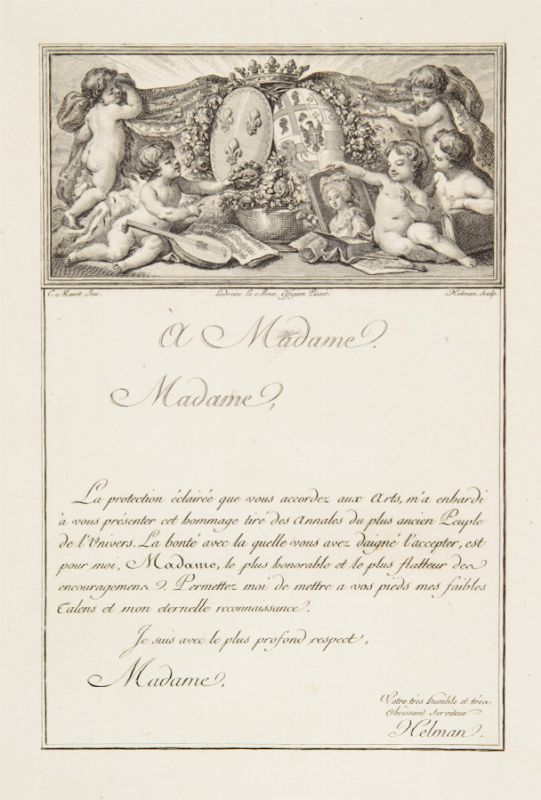 C. Monet, Inv.
Ludovica Le Brun, Effigiem Pinxit.
Helman, Sculp.
À Madame.
Madame,
La protection éclairée que vous accordez aux Arts, m'a enhardi
à vous présenter cet hommage tiré des Annales du plus ancien Peuple
de l'Univers. La bonté avec la quelle vous avez daigné l'accepter, est
pour moi, Madame, le plus honorable et le plus flatteur des
encouragemens. Permettez moi de mettre a vos pieds mes faibles
Talens et mon eternelle reconnaissance.
Je suis avec le plus profond respect,
Madame.
Votre très humble et tres
Obeissant Serviteur
Helman.